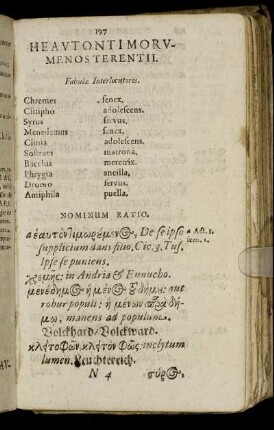 197
HEAVTONTIMORV-
MENOS TERENTII.
Fabulæ Interlocutores.
Chremes senex.
Clitipho adolescens.
Syrus servus.
Menedemus senex.
Clinia adolescens.
Sostrata matrona.
Bacchia meretrix.
Phrygia ancilla.
Dromo servus.
Antiphila puella.
NOMINUM RATIO.
De se ipso
supplicium dans filio, Cic. 3. Tus.
Ipse se puniens.
χρεμης: in Andria & Eunucho.
aut
robur populi: ἢ μένων
μῳ, manens ad populum.
Volckhard/Volckward.
inclytum
lumen. Leuchtereich.
N 4